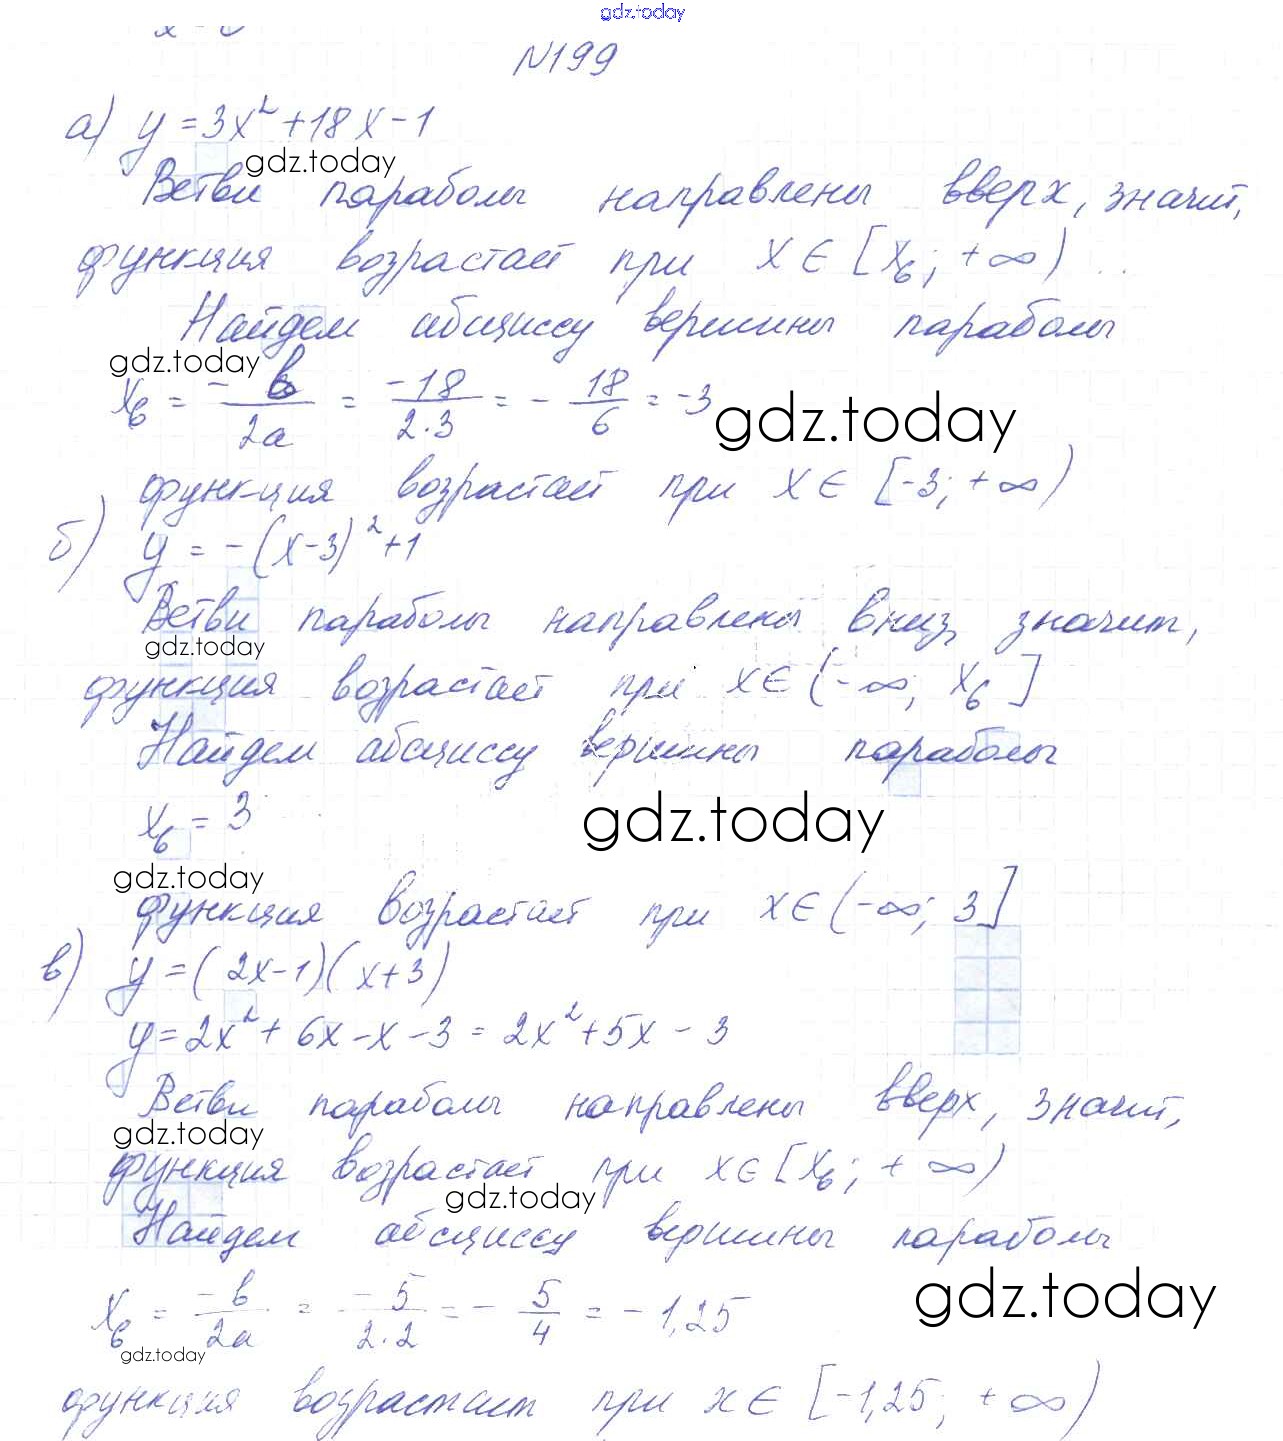 gdz.today
N199
а) y = 3x² + 18x - 1
gdz.today
Ветви параболы направлены вверх, значит,
функция возрастает при x ∈ [xв; +∞)
Найдем абциссу вершины параболы
gdz.today
xв = -в/2a = -18/2·3 = -18/6 = -3
gdz.today
функция возрастает при x ∈ [-3; +∞)
б) y = -(x-3)² + 1
Ветви параболы направлены вниз, значит,
gdz.today
функция возрастает при x ∈ (-∞; xв]
Найдем абсциссу вершины параболы
xв = 3
gdz.today
gdz.today
функция возрастает при x ∈ (-∞; 3]
в) y = (2x-1)(x+3)
y = 2x² + 6x - x - 3 = 2x² + 5x - 3
Ветви параболы направлены вверх, значит,
gdz.today
функция возрастает при x ∈ [xв; +∞)
gdz.today
Найдем абсциссу вершины параболы
gdz.today
xв = -в/2a = -5/2·2 = -5/4 = -1,25
gdz.today
функция возрастает при x ∈ [-1,25; +∞)